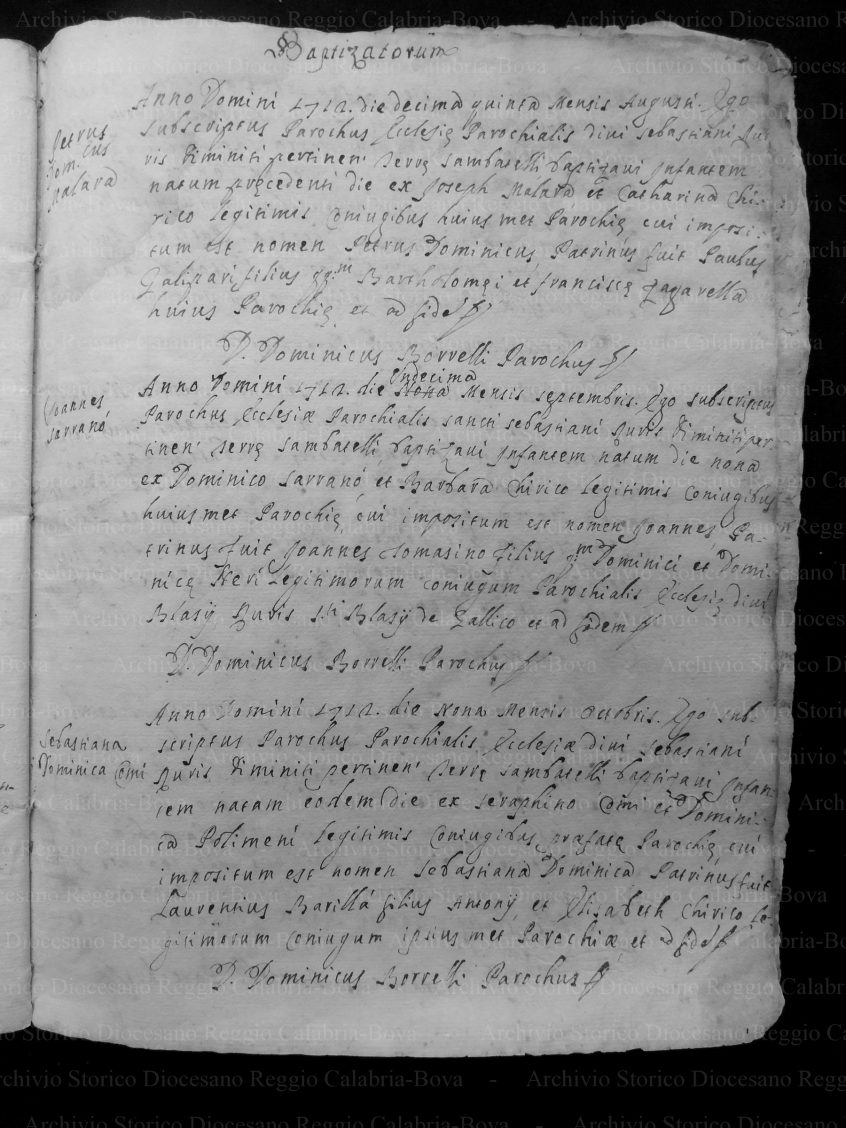 Baptizatorum
Petrus
Dom.cus
Malara
Anno Domini 1712. die decima quinta Mensis Augusti. Ego
subscriptus Parochus Ecclesię Parochialis divi sebastiani Ju-
ris Diminiti pertinen: serrę sambatelli baptizavi Infantem
natum pręcedenti die ex Joseph Malara et Catharina Chi-
rico legitimis Coniugibus huius met Parochię cui imposi-
tum est nomen Petrus Dominicus, Patrinus fuit Paulus
Galipari filius qq.m Bartholomęi et franciscę Zagarella
huius Parochię et ad fide
D. Dominicus Borrelli Parochus
Joannes
sarranó
Undecima
Anno Domini 1712. die Nona Mensis septembris. Ego subscriptus
Parochus Ecclesiæ Parochialis sancti sebastiani Juris Diminiti per-
tinen: serrę sambatelli baptizavi Infantem natum die nona
ex Dominico sarranó, et Barbara Chirico legitimis Coniugibus
huius met Parochię, cui impositum est nomen Joannes, Pa-
trinus fuit Joannes tomasino filius Dominici et Domi-
nicę Neri legitimorum coniugum Parochialis Ecclesię divi
Blasij Juris s.ti Blasij de Gallico et ad fidem
D. Dominicus Borrelli Parochus
Sebastiana
Dominica Cimi
Anno Domini 1712. die Nona Mensis Octobris. Ego sub-
scriptus Parochus Parochialis Ecclesiæ divi sebastiani
Juris Diminiti pertinen: serrę sambatelli baptizavi Infan-
tem natam eodem die ex seraphino Cimi et Domini-
ca Polimeni legitimis Coniugibus præfatę Parochię, cui
impositum est nomen sebastiana Dominica Patrinus fuit
Laurentius Barillá filius Antonij, et Elisabeth Chirico le-
gitimorum Coniugum ipsius met Parochiæ, et ad fide
D. Dominicus Borrelli Parochus